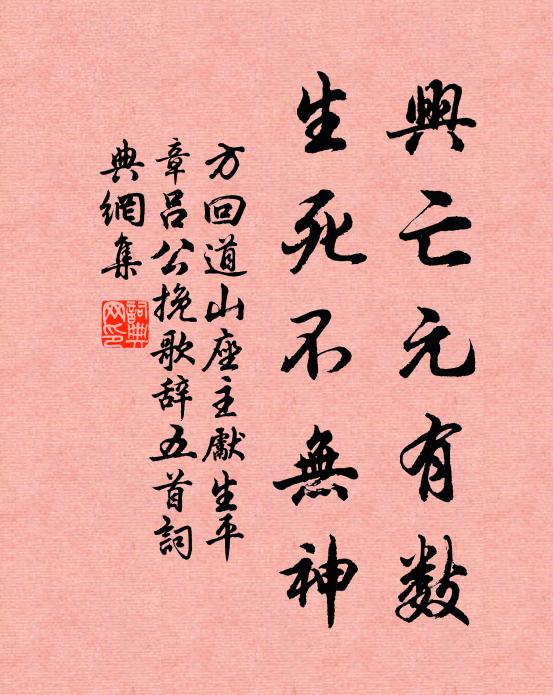 興亡元有数
生死不無神
方回道山座主獻生平
章呂公挽歌辞五首詞
典網集
詞典网印